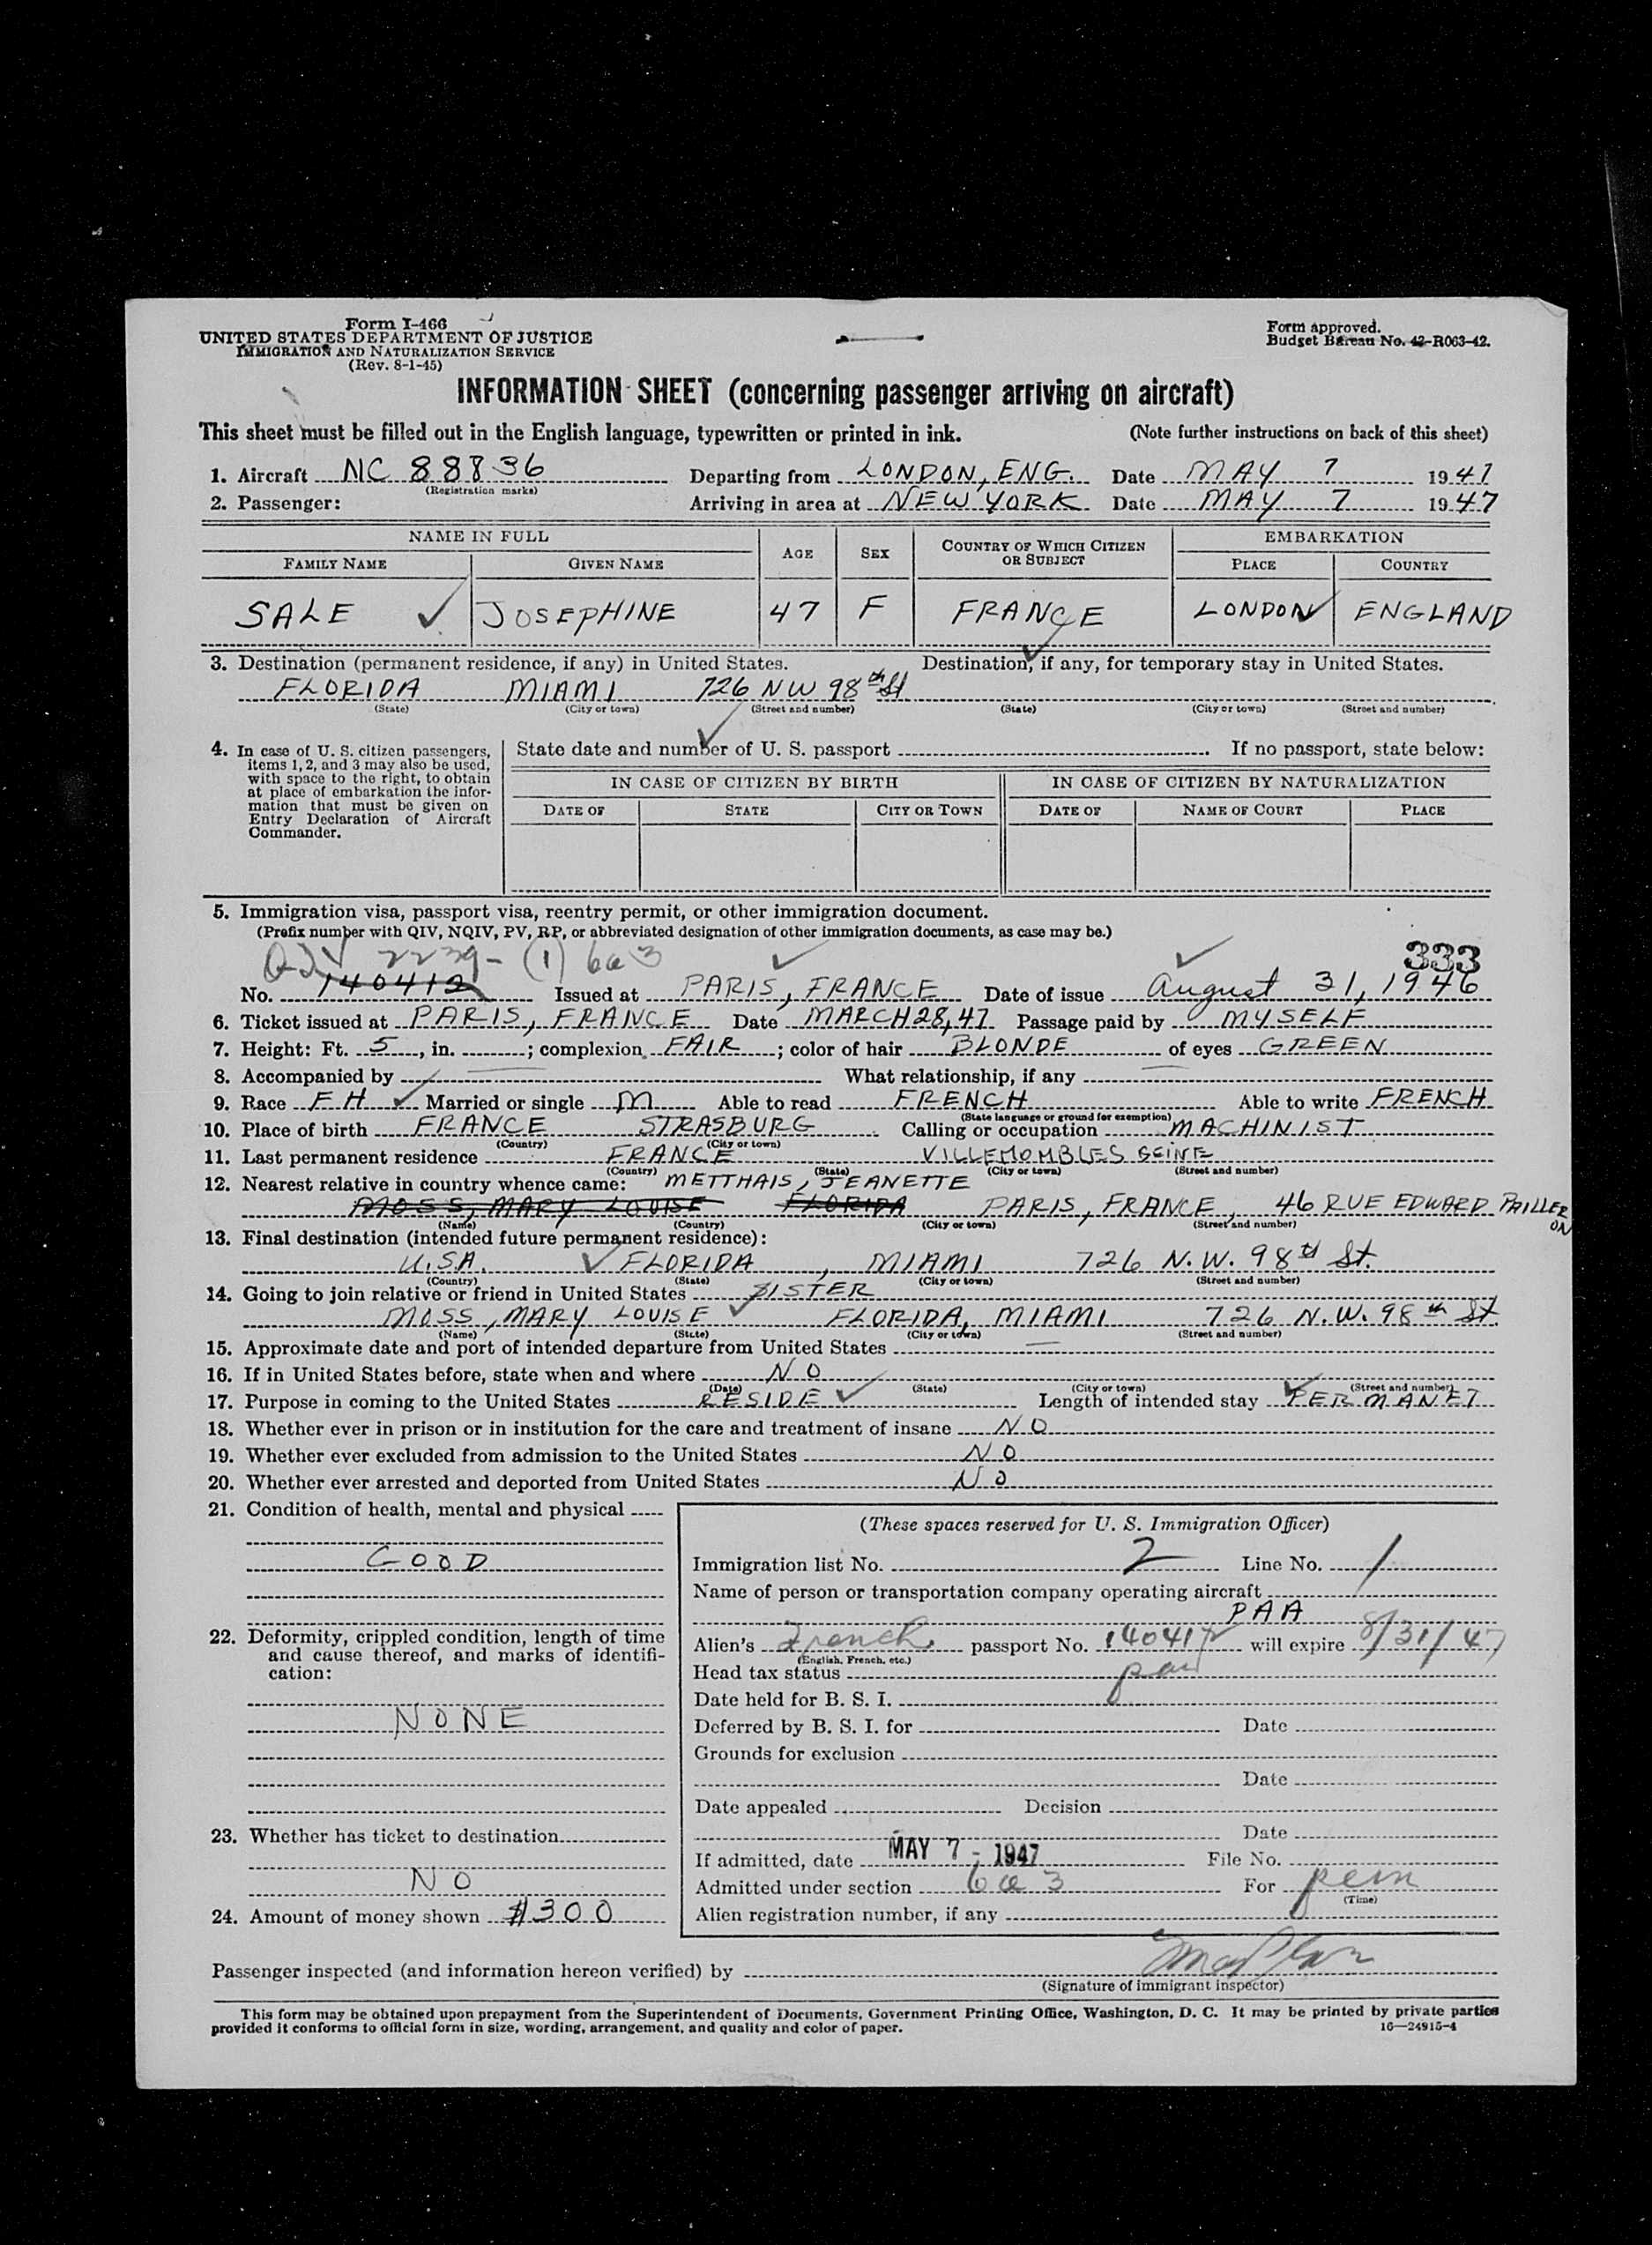 Form I-466
UNITED STATES DEPARTMENT OF JUSTICE
IMMIGRATION AND NATURALIZATION SERVICE
(Rev. 8-1-45)
Form approved.
Budget Bureau No. 42-R063-42.
INFORMATION SHEET (concerning passenger arriving on aircraft)
This sheet must be filled out in the English language, typewritten or printed in ink. (Note further instructions on back of this sheet)
1. Aircraft NC 88836 Departing from LONDON, ENG. Date MAY 7 1947
(Registration marks)
2. Passenger: Arriving in area at NEW YORK Date MAY 7 1947
NAME IN FULL AGE SEX COUNTRY OF WHICH CITIZEN OR SUBJECT EMBARKATION
FAMILY NAME GIVEN NAME PLACE COUNTRY
SALE JOSEPHINE 47 F FRANCE LONDON ENGLAND
3. Destination (permanent residence, if any) in United States. Destination, if any, for temporary stay in United States.
FLORIDA MIAMI 726 NW 98th St
(State) (City or town) (Street and number) (State) (City or town) (Street and number)
4. In case of U. S. citizen passengers, items 1, 2, and 3 may also be used, with space to the right, to obtain at place of embarkation the information that must be given on Entry Declaration of Aircraft Commander.
State date and number of U. S. passport . If no passport, state below:
IN CASE OF CITIZEN BY BIRTH IN CASE OF CITIZEN BY NATURALIZATION
DATE OF STATE CITY OR TOWN DATE OF NAME OF COURT PLACE
5. Immigration visa, passport visa, reentry permit, or other immigration document.
(Prefix number with QIV, NQIV, PV, RP, or abbreviated designation of other immigration documents, as case may be.)
QIV 2239- (1) 6a3 333
No. 140412 Issued at PARIS, FRANCE Date of issue August 31, 1946
6. Ticket issued at PARIS, FRANCE Date MARCH 28, 47 Passage paid by MYSELF
7. Height: Ft. 5, in. ; complexion FAIR; color of hair BLONDE of eyes GREEN
8. Accompanied by What relationship, if any
9. Race FH Married or single M Able to read FRENCH Able to write FRENCH
(State language or ground for exemption)
10. Place of birth FRANCE STRASBURG Calling or occupation MACHINIST
(Country) (City or town)
11. Last permanent residence FRANCE VILLEMOMBLES SEINE
(Country) (State) (City or town) (Street and number)
12. Nearest relative in country whence came: METTHAIS, JEANETTE
MOSS, MARY LOUISE FLORIDA PARIS, FRANCE, 46 RUE EDWARD PAILLERON
(Name) (Country) (City or town) (Street and number)
13. Final destination (intended future permanent residence):
U.S.A. FLORIDA, MIAMI 726 N.W. 98th St.
(Country) (State) (City or town) (Street and number)
14. Going to join relative or friend in United States SISTER
MOSS, MARY LOUISE FLORIDA, MIAMI 726 N.W. 98th St
(Name) (State) (City or town) (Street and number)
15. Approximate date and port of intended departure from United States —
16. If in United States before, state when and where NO
(Date) (State) (City or town) (Street and number)
17. Purpose in coming to the United States RESIDE Length of intended stay PERMANET
18. Whether ever in prison or in institution for the care and treatment of insane NO
19. Whether ever excluded from admission to the United States NO
20. Whether ever arrested and deported from United States NO
21. Condition of health, mental and physical
GOOD
22. Deformity, crippled condition, length of time and cause thereof, and marks of identification:
NONE
23. Whether has ticket to destination
NO
24. Amount of money shown $300
(These spaces reserved for U. S. Immigration Officer)
Immigration list No. 2 Line No. 1
Name of person or transportation company operating aircraft
PAA
Alien's French passport No. 140412 will expire 8/31/47
(English, French, etc.)
Head tax status
Date held for B. S. I.
Deferred by B. S. I. for Date
Grounds for exclusion
Date
Date appealed Decision
Date
If admitted, date MAY 7 - 1947 File No.
Admitted under section 6a3 For perm
(Time)
Alien registration number, if any
Passenger inspected (and information hereon verified) by
(Signature of immigrant inspector)
This form may be obtained upon prepayment from the Superintendent of Documents, Government Printing Office, Washington, D. C. It may be printed by private parties
provided it conforms to official form in size, wording, arrangement, and quality and color of paper. 16—24915-4